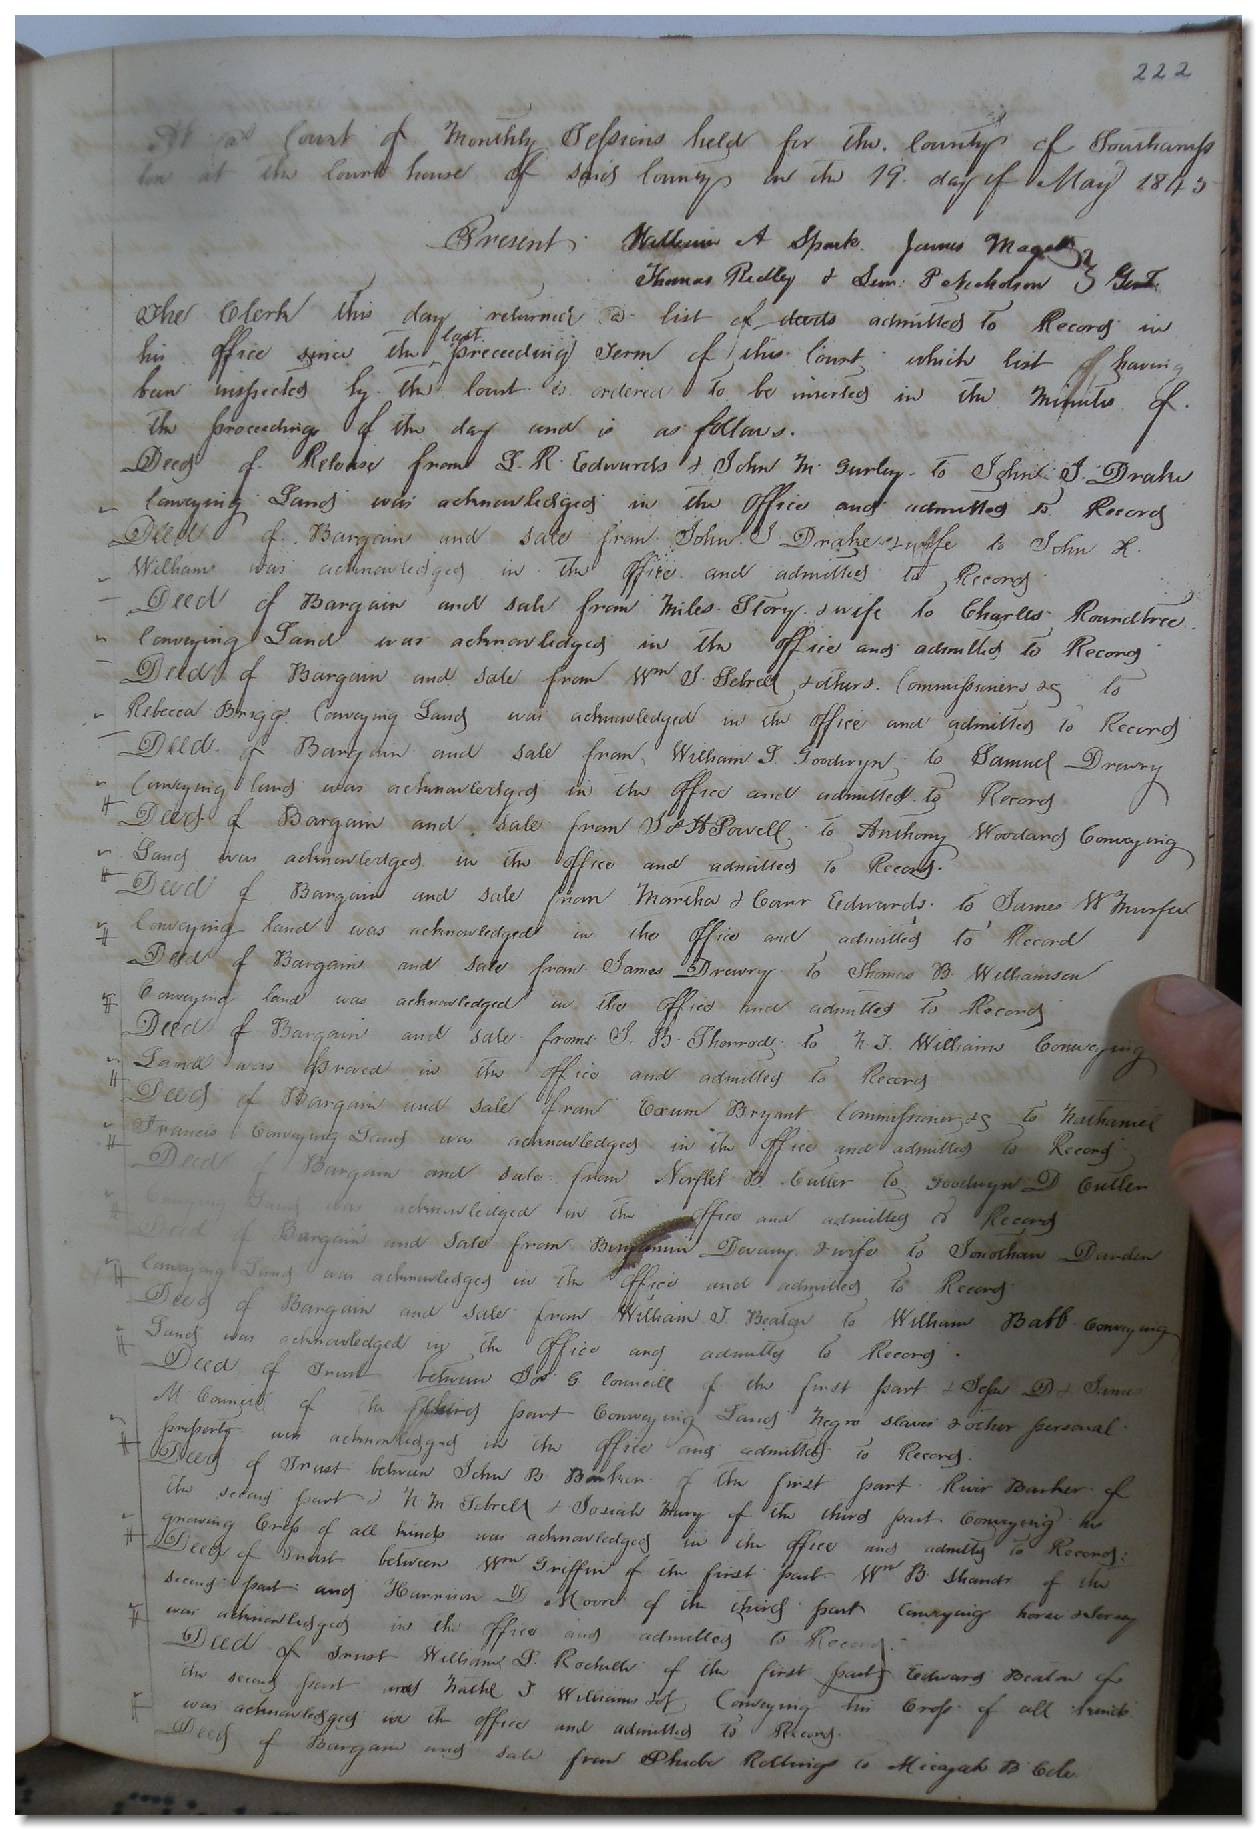 222
At a Court of Monthly Sessions held for the County of Southamp
ton at the Court house of said County on the 19 day of May 1845
Present William A Spark James Maget
Thomas Ridley & P Nicholson Gent
The Clerk this day returned a list of deeds admitted to Record in
his office since the last preceeding Term of this Court which list having
been inspected by the Court is ordered to be inserted in the Minutes of
the proceedings of the day and is as follows.
Deed of Release from L. R. Edwards & John M Gurley to John J. Drake
Conveying Land was acknowledged in the office and admitted to Record
Deed of Bargain and sale from John J Drake & wife to John
William was acknowledged in the office and admitted to Record
Deed of Bargain and sale from Miles Story & wife to Charles Roundtree
Conveying Land was acknowledged in the office and admitted to Record
Deed of Bargain and sale from Wm J. Sebrell & others Commissioners &c to
Rebecca Brigg Conveying Land was acknowledged in the office and admitted to Record
Deed of Bargain and sale from William J. Goodwyn to Samuel Drewry
Conveying land was acknowledged in the office and admitted to Record
Deed of Bargain and sale from J & H Powell to Anthony Woodard Conveying
Land was acknowledged in the office and admitted to Record.
Deed of Bargain and sale from Martha & Carr Edwards to James W Murfee
Conveying land was acknowledged in the office and admitted to Record
Deed of Bargain and sale from James Drewry to Thomas B. Williamson
Conveying land was acknowledged in the office and admitted to Record
Deed of Bargain and sale from J. B. to N. J. Williams Conveying
Land was proved in the office and admitted to Record
Deed of Bargain and sale from Exum Bryant Commissioner &c to Nathaniel
Francis Conveying Land was acknowledged in the office and admitted to Record
Deed of Bargain and sale from Norflet B. Cutler to Goodwyn D Cutler
Conveying Land was acknowledged in the office and admitted to Record
Deed of Bargain and sale from Benjamin Devany & wife to Jonathan Darden
Conveying Land was acknowledged in the office and admitted to Record
Deed of Bargain and sale from William J. Beaton to William Babb Conveying
Land was acknowledged in the office and admitted to Record.
Deed of Trust between Jos G Councill of the first part & D &
M Council of the third part Conveying Land Negro slaves & other personal
property was acknowledged in the office and admitted to Record.
Deed of Trust between John B. Barker of the first part Barker of
the second part & N. M. Sebrell & Josiah Mury of the third part Conveying his
growing Crops of all kinds was acknowledged in the office and admitted to Record.
Deed of Trust between Wm Griffin of the first part Wm B. Shands of the
second part and Harrison D Moore of the third part Conveying horse
was acknowledged in the office and admitted to Record.
Deed of Trust William S. Rochelle of the first part Edward Beaton of
the second part and Nathl J Williams Conveying his Crops of all kinds
was acknowledged in the office and admitted to Record.
Deed of Bargain and sale from Phebe Rollings to Micajah B Cole